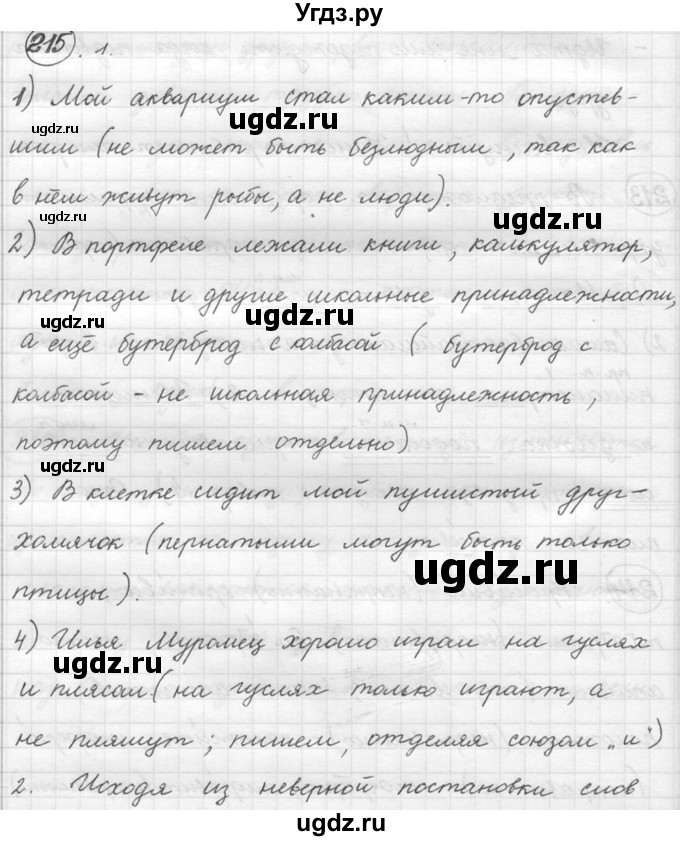 Угдз.ру
215. 1.
1) Мой аквариум стал каким-то опустев-
шим (не может быть безлюдным, так как
в нём живут рыбы, а не люди).
2) В портфеле лежали книги, калькулятор,
тетради и другие школьные принадлежности,
а ещё бутерброд с колбасой (бутерброд с
колбасой - не школьная принадлежность,
поэтому пишем отдельно)
3) В клетке сидит мой пушистый друг-
хомячок (пернатыми могут быть только
птицы).
4) Илья Муромец хорошо играл на гуслях
и плясал (на гуслях только играют, а
не пляшут; пишем, отделяя союзом „и")
2. Исходя из неверной постановки слов
ugdz.ru
ugdz.ru
ugdz.ru
ugdz.ru
ugdz.ru
ugdz.ru
ugdz.ru
ugdz.ru
ugdz.ru
ugdz.ru
ugdz.ru
ugdz.ru
ugdz.ru